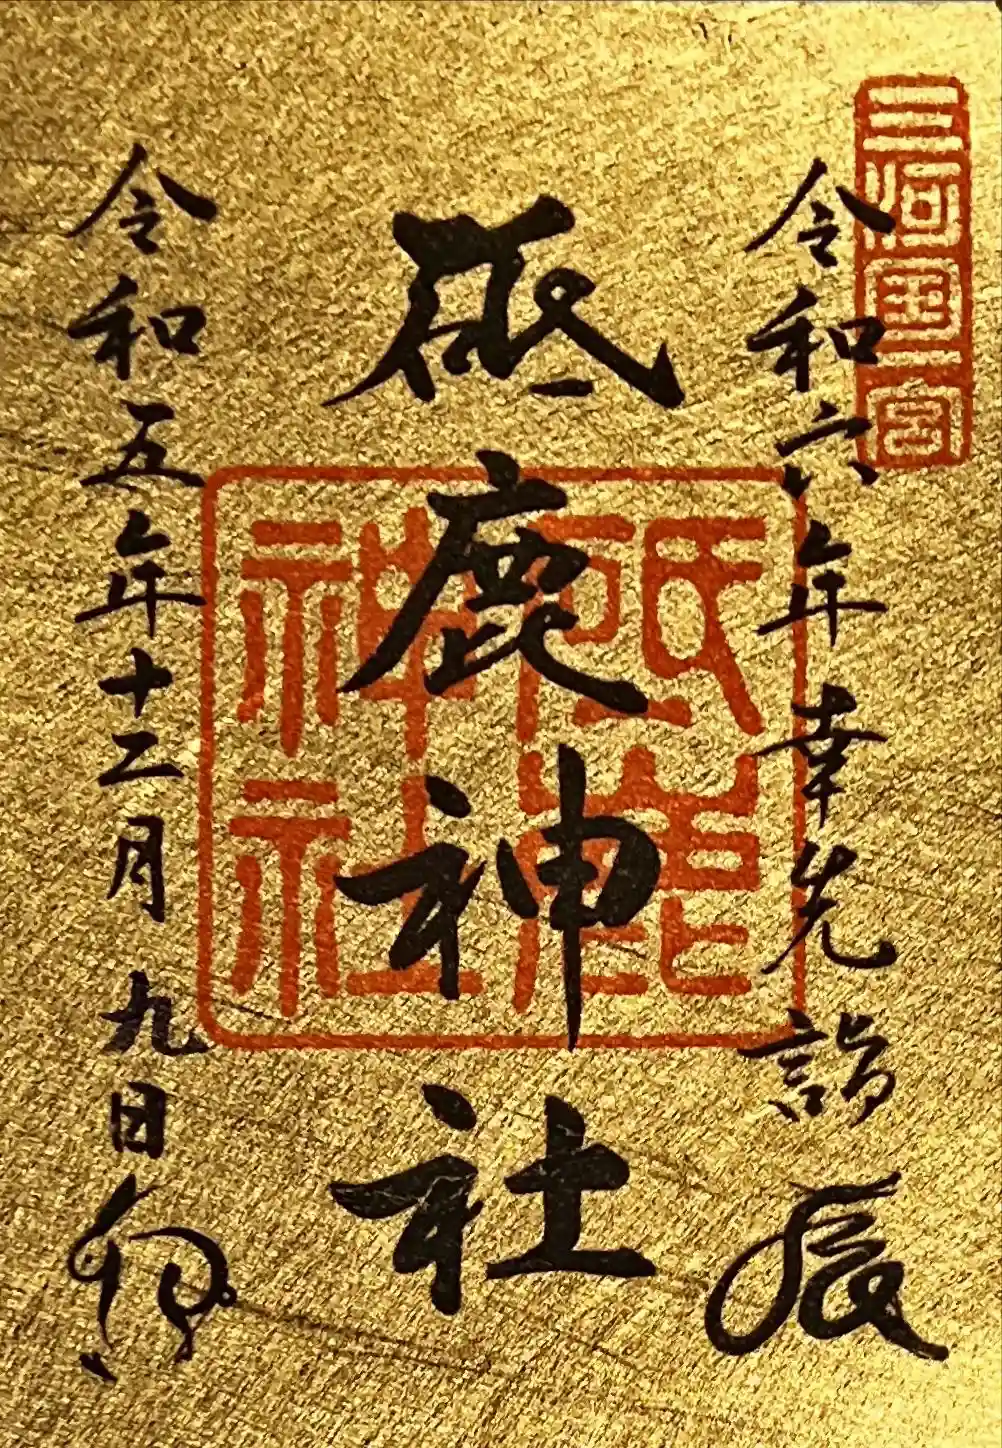 三河國一宮
令和六年 幸先詣 辰
砥鹿神社
砥鹿神社
令和五年十二月九日 卯